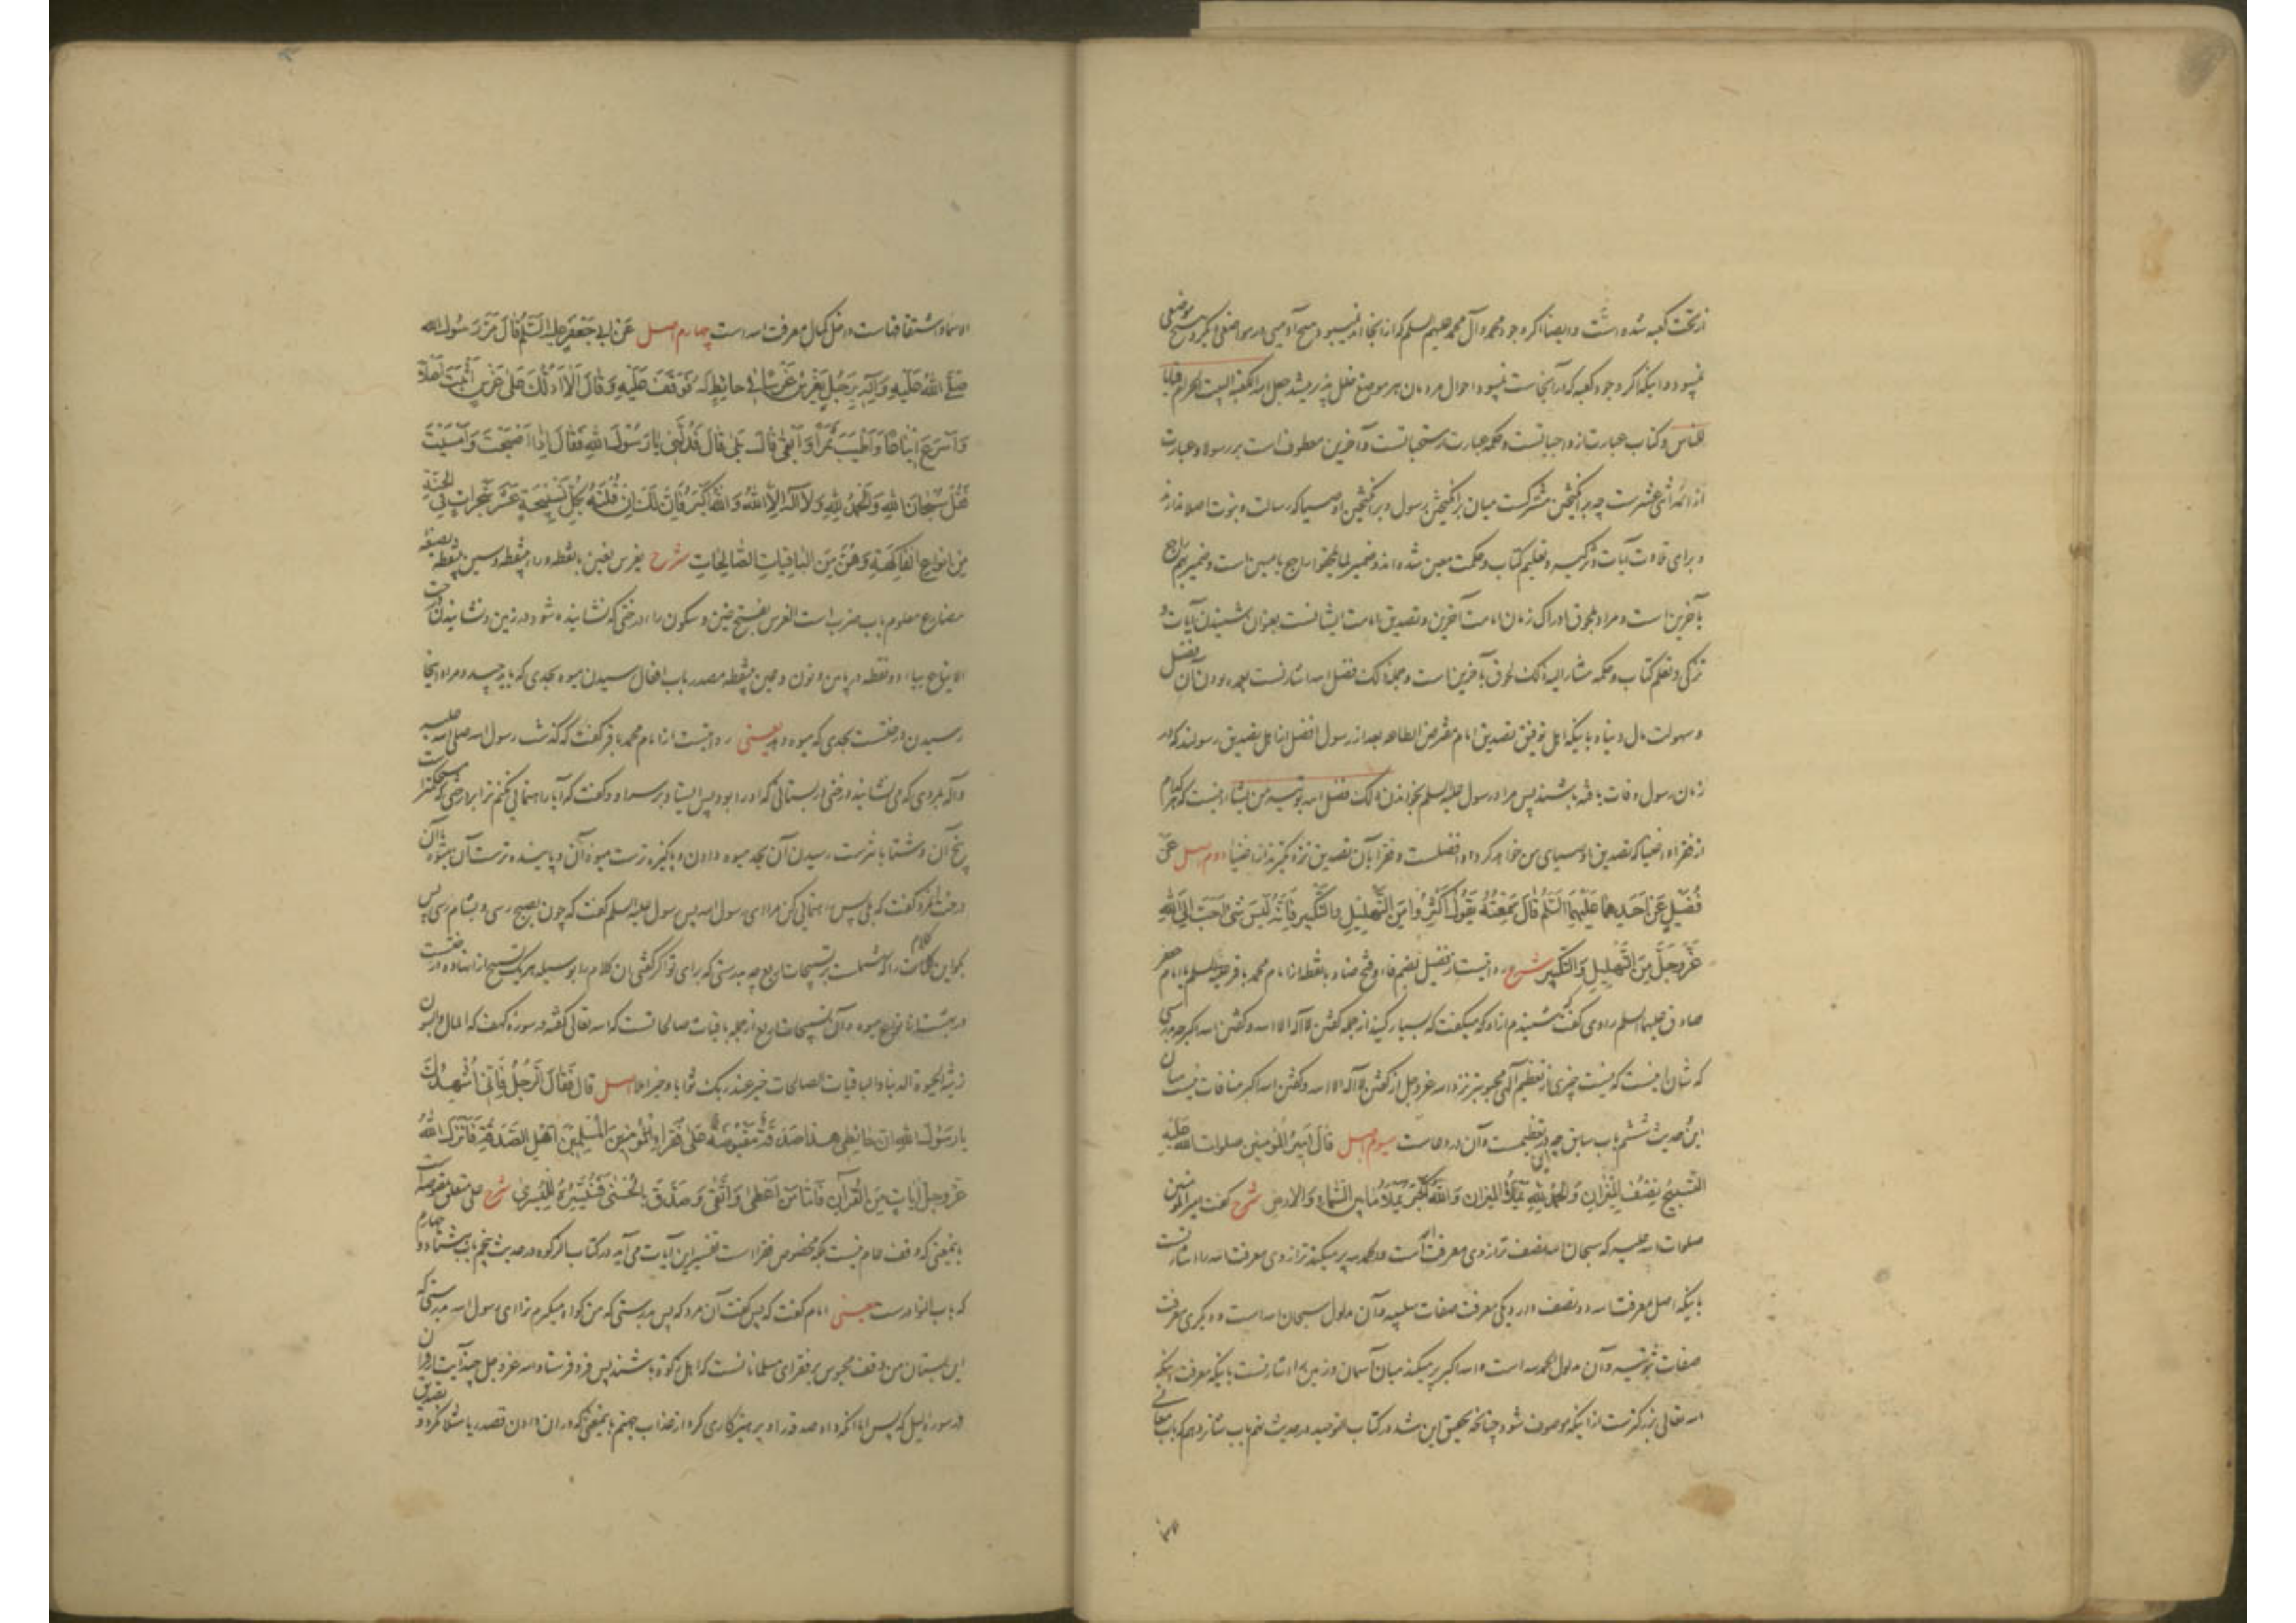 از تحت کعبه شده است و ایضا اگر وجود محمد و آل محمد علیهم السلم که از انجا اند نمیبود هیچ آدمیی در موضعی
نمیبود و اینکه اگر وجود کعبه که در آنجاست نمیبود احوال مردمان هر موضع خلل پذیر میشد جعل الله الکعبة البیت الحرام قیاما
للناس و کتاب عبارت از واجباتست و حکمه عبارت مستحباتست و آخرین معطوف است بر رسولا و عبارت
از ائمه اثنی عشرست چه برانگیختن مشترکست میان برانگیختن رسول و برانگیختن اوصیا که رسالت و نبوت اصلا ندارند
و برای تلاوت آیات و تزکیه و تعلیم کتاب و حکمت معین شده اند و ضمیر لما یلحقوا راجع بامیین است و ضمیر بهم راجع
بآخرین است و مراد بلحوق ادراک زمان امامت آخرین و تصدیق امامت ایشانست بعنوان شنیدن آیات و
تزکی و تعلم کتاب و حکمه مشار الیه ذلک لحوق بآخرین است و جمله ذلک فضل الله اشارتست
و سهولت مال دنیا و باینکه اهل توفیق تصدیق امام مفترض الطاعه بعد از رسول افضل از اهل تصدیق رسولند که در
زمان رسول وفات یافته باشند پس مراد رسول علیه السلم بخواندن ذلک فضل الله یوتیه من یشاء اینست که هر کدام
از فقرا و اغنیا که تصدیق اوصیای من خواهد کرد او افضلست و فقرا بآن تصدیق نزدیکترند از اغنیا دوم اصل عن
فُضَیْلٍ عَنْ اَحَدِهِما عَلَیْهِمَا السَّلمُ قالَ سَمِعْتُهُ یَقُولُ اَکْثِرُوا مِنَ التَّهْلِیلِ وَالتَّکْبیرِ فَاِنَّهُ لَیْسَ شَیْءٌ اَحَبَّ اِلَی اللهِ
عَزَّوَجَلَّ مِنَ التَّهْلِیلِ وَالتَّکْبیرِ شرح روایتست از فضیل بضم فاء و فتح ضاد بانقطه از امام محمد باقر علیه السلم یا امام جعفر
صادق علیهما السلم راوی گفت که شنیدم از او که میگفت که بسیار کنید از جمله گفتن لا اله الا الله و گفتن الله اکبر چه بدرستی
که شان اینست که نیست چیزی از تعظیم آلهی محبوبتر نزد الله عزوجل از گفتن لا اله الا الله و گفتن الله اکبر منافات نیست میان
این و حدیث ششم باب سابق چه این در تعظیمست و آن در دعاست سیوم اصل قالَ اَمیرُ المُؤمِنین صلوات الله عَلَیْهِ
التَّسْبیحُ نِصْفُ المیزانِ وَالحَمْدُ لِلّهِ یَمْلَأُ المیزان وَاللهُ اَکْبَرُ یَمْلَأُ ما بینَ السَّماءِ وَالارضِ شرح گفت امیرالمومنین
صلوات الله علیه که سبحان الله نصف ترازوی معرفت الله است و الحمد لله پر میکند ترازوی معرفت الله را اشارتست
باینکه اصل معرفت الله دو نصف دارد یکی معرفت صفات سلبیه و آن مدلول سبحان الله است و دیگری معرفت
صفات ثبوتیه و آن مدلول الحمد لله است و الله اکبر پر میکند میان آسمان و زمین را اشارتست باینکه معرفت اینکه
الله تعالی بزرگترست از اینکه موصوف شود چنانچه تحقیق این شد در کتاب التوحید در حدیث نهم باب شانزدهم که باب معانی
الاسماء و اشتقاقهاست داخل کمال معرفت الله است چهارم اصل عَنْ اَبی جَعْفَرٍ علیه السَّلمُ قالَ مَرَّ رَسُولُ الله
صَلَّی اللهُ عَلَیْهِ وَآلِهِ بِرَجُلٍ یَغْرِسُ غَرْسًا فی حائِطٍ لَهُ فَوَقَفَ عَلَیْهِ وَقالَ اَلا اَدُلُّکَ عَلی غَرْسٍ اَثْبَتَ اَصْلاً
وَاَسْرَعَ ایْناعًا وَاَطْیَبَ ثَمَراً وَاَبْقی قالَ بَلی قالَ فَدُلَّنی یا رَسُولَ اللهِ فَقالَ اِذا اَصْبَحْتَ وَاَمْسَیْتَ
فَقُلْ سُبْحانَ اللهِ وَالحَمْدُ لِلّهِ وَلا اِلهَ اِلَّا اللهُ وَاللهُ اَکْبَرُ فَاِنَّ لَکَ اِنْ قُلْتَهُ بِکُلِّ تَسْبیحَةٍ عَشْرَ شَجَراتٍ فِی الجَنَّةِ
مِنْ انواعِ الفاکِهَةِ وَهُنَّ مِنَ الباقِیاتِ الصّالِحاتِ شرح یغرس بغین بانقطه و راء بینقطه و سین بینقطه بصیغه
مضارع معلوم باب ضرب است الغرس بفتح غین و سکون راء درختی که نشانیده شود در زمین و نشانیدن درخت
الایناع بیاء دو نقطه در پایین و نون و عین بینقطه مصدر باب افعال رسیدن میوه بحدی که باید چید و مراد اینجا
رسیدن درختست بحدی که میوه دهد یعنی روایتست از امام محمد باقر گفت که گذشت رسول الله صلی الله علیه
و آله بمردی که می نشانید درختی در بستانی که او را بود پس ایستاد بر سر او و گفت که آیا راهنمائی نکنم ترا بر درختی که محکمترست
بیخ آن و شتاب ترست رسیدن آن بحد میوه دادن و پاکیزه ترست میوه آن و پاینده ترست آن میوه یا آن
درخت آنمرد گفت که بلی پس راهنمائی کن مرا ای رسول الله پس رسول علیه السلم گفت که چون بصبح رسی و بشام رسی پس
بگو این کلام را که مشتملست بر تسبیحات اربع چه بدرستی که برای تو اگر گفتی این کلام را بوسیله هر یک تسبیح از آنها ده درختست
در بهشت از انواع میوه و آن تسبیحات اربع از جمله باقیات صالحاتست که الله تعالی گفته در سوره کهف که المال و البنون
زینة الحیوة الدنیا و الباقیات الصالحات خیر عند ربک ثوابا و خیر املا اصل قال فَقالَ الرَّجُلُ فَاِنّی اُشْهِدُکَ
یا رَسُولَ اللهِ اِنَّ حائِطی هذا صَدَقَةٌ مَقْبُوضَةٌ عَلی فُقَراءِ المُؤمِنینَ المُسْلِمینَ اَهْلِ الصَّدَقَةِ فَاَنْزَلَ اللهُ
عَزَّوَجَلَّ آیاتٍ مِنَ القُرْآنِ فَاَمّا مَنْ اَعْطی وَاتَّقی وَصَدَّقَ بِالحُسْنی فَسَنُیَسِّرُهُ لِلْیُسْری شرح علی متعلق بمقبوضه است
بمعنی که وقف عام نیست بلکه مخصوص فقرا است تفسیر این آیات می آید در کتاب الزکوة در حدیث پنجم باب هشتاد و چهارم
که باب النوادرست یعنی امام گفت که پس گفت آن مرد که پس بدرستی که من گواه میگیرم ترا ای رسول الله بدرستی که
این بستان من وقف محبوس بر فقرای مسلمانانست که اهل زکوة باشند پس فرو فرستاد الله عزوجل چند آیت از قرآن
در سوره اللیل که پس اما آنکه داد صدقه را و پرهیزکاری کرد از عذاب جهنم بمعنی که در آن دادن قصد ریا مثلا نکرد و تصدیق